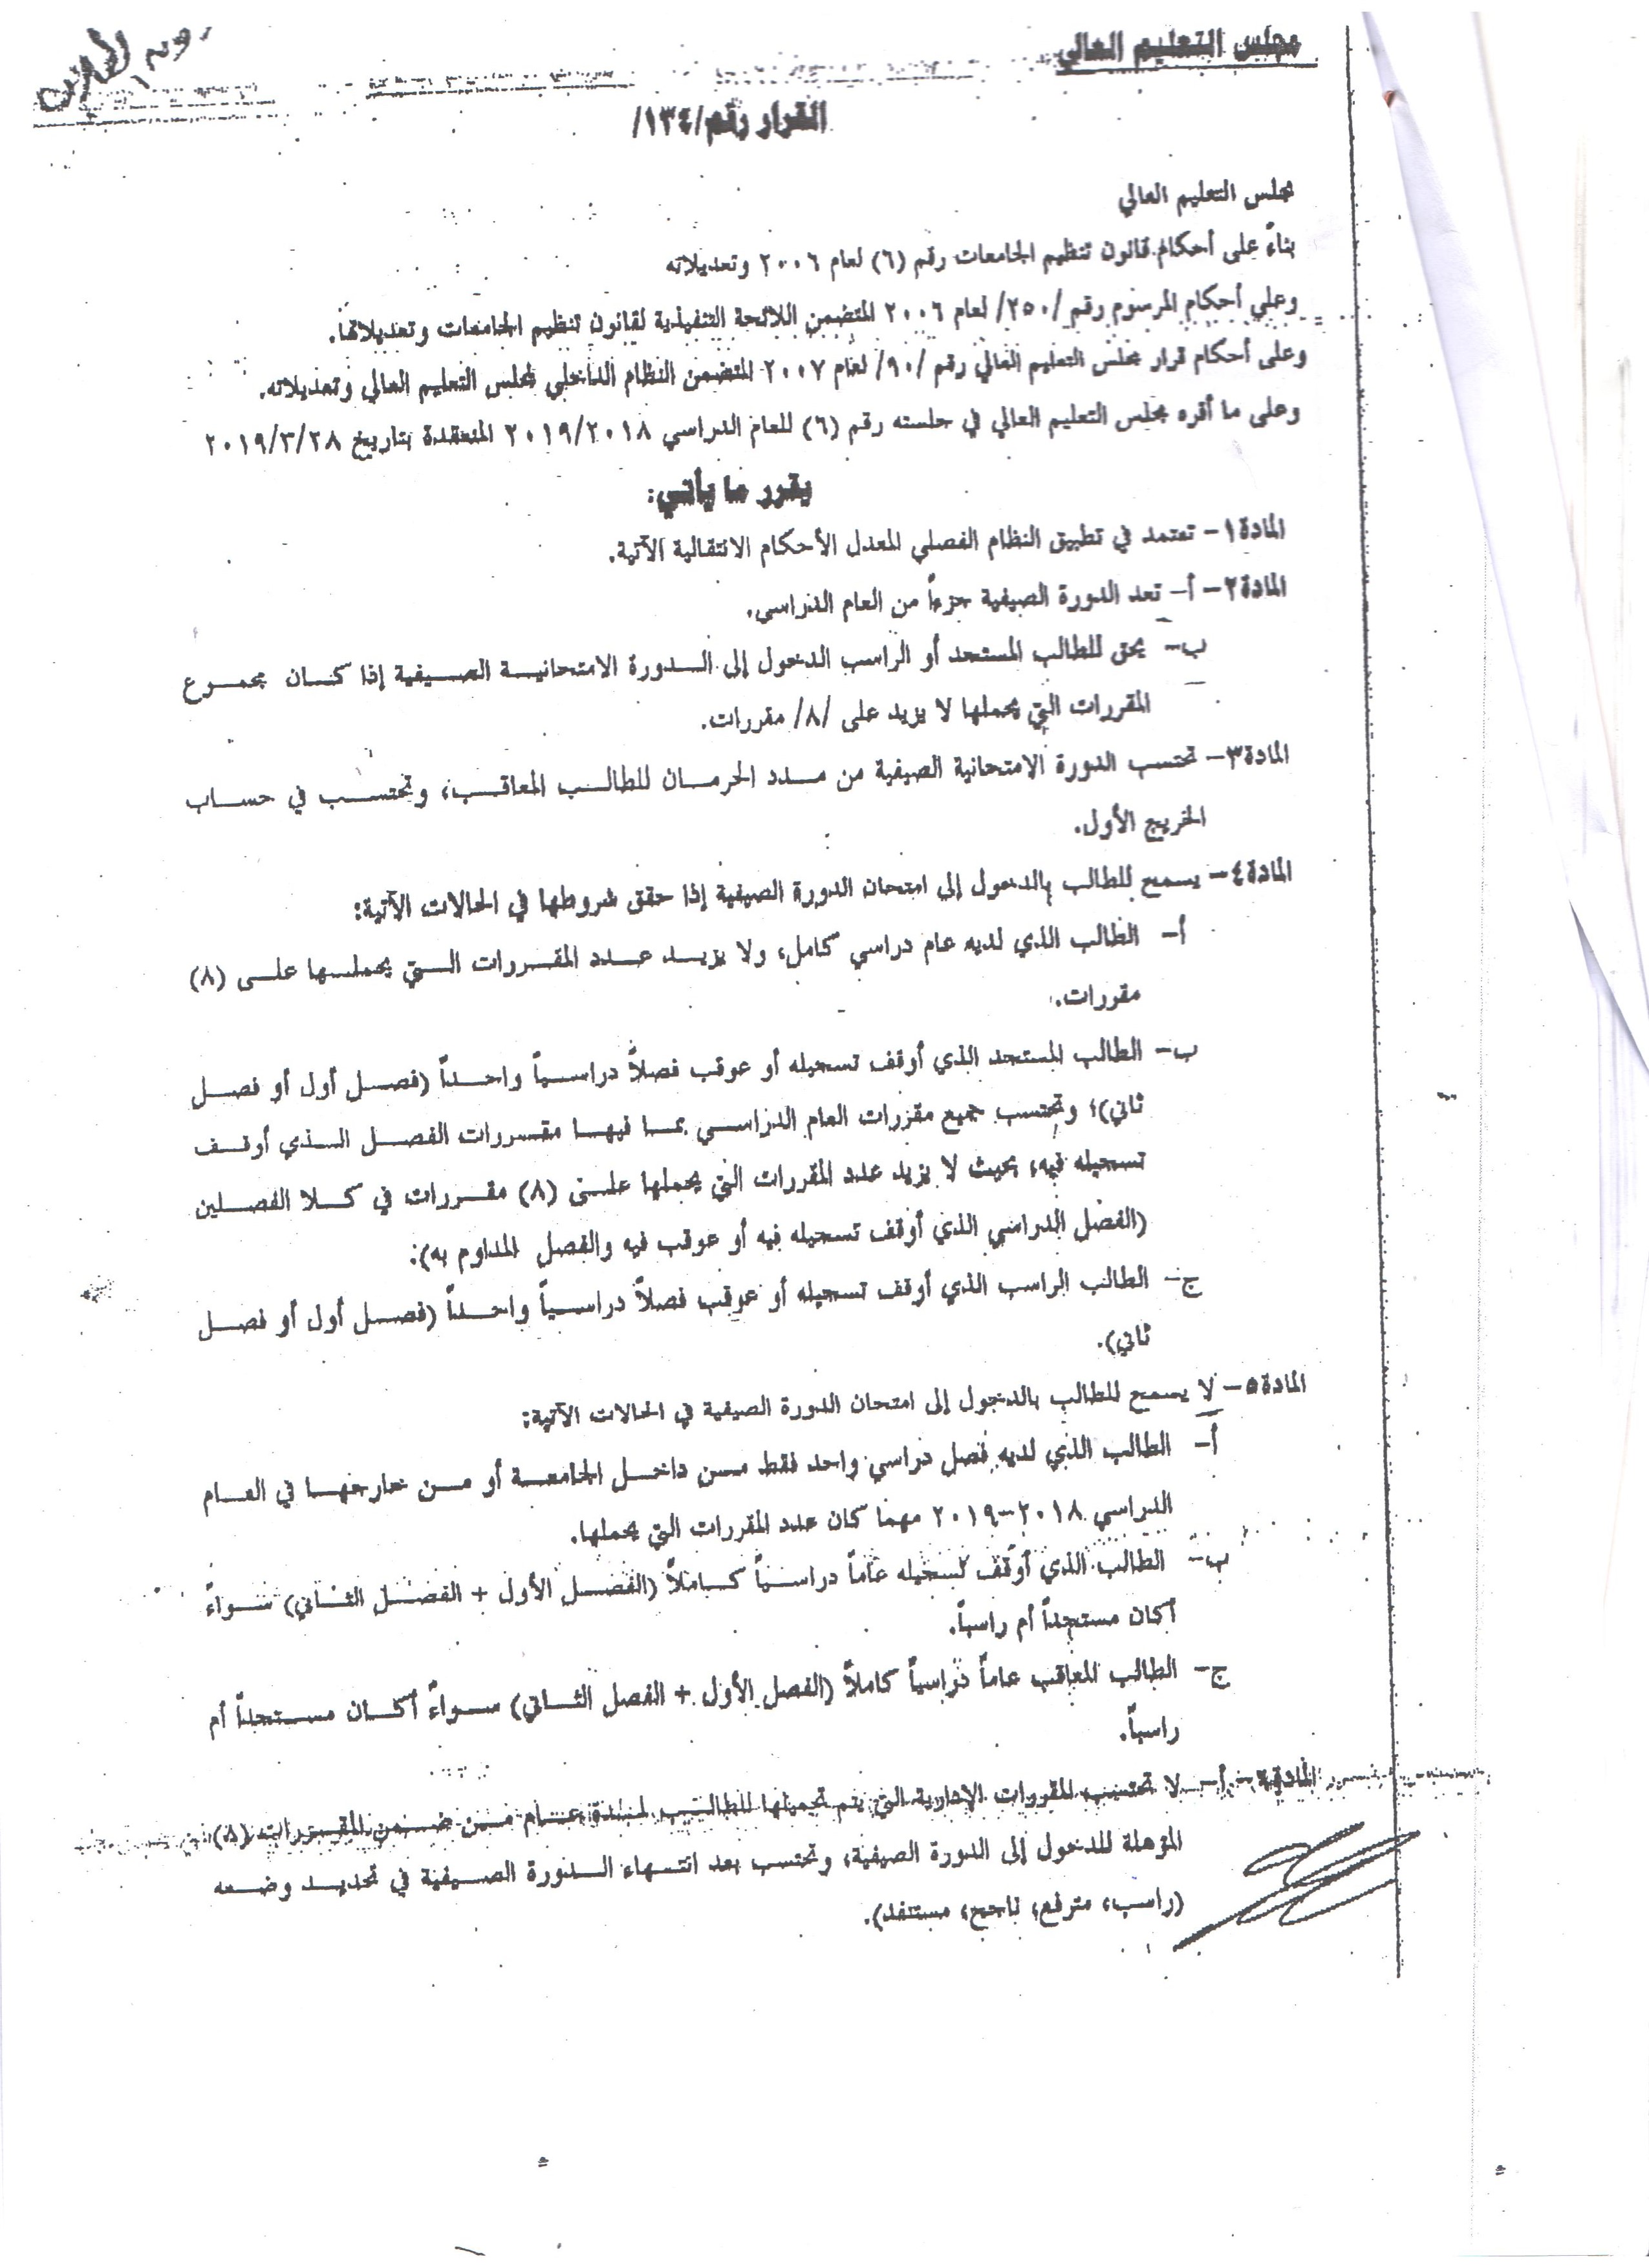 مجلس التعليم العالي
القرار رقم/١٣٤/
مجلس التعليم العالي
بناءً على أحكام قانون تنظيم الجامعات رقم (٦) لعام ٢٠٠٦ وتعديلاته
وعلى أحكام المرسوم رقم /٢٥٠/ لعام ٢٠٠٦ المتضمن اللائحة التنفيذية لقانون تنظيم الجامعات وتعديلاتها.
وعلى أحكام قرار مجلس التعليم العالي رقم /٩٠/ لعام ٢٠٠٧ المتضمن النظام الداخلي لمجلس التعليم العالي وتعديلاته.
وعلى ما أقره مجلس التعليم العالي في جلسته رقم (٦) للعام الدراسي ٢٠١٩/٢٠١٨ المنعقدة بتاريخ ٢٠١٩/٣/٢٨
يقرر ما يأتي:
المادة ١– تعتمد في تطبيق النظام الفصلي المعدل الأحكام الانتقالية الآتية.
المادة ٢– أ– تعد الدورة الصيفية جزءاً من العام الدراسي.
ب– يحق للطالب المستجد أو الراسب الدخول إلى الدورة الامتحانية الصيفية إذا كان مجموع
المقررات التي يحملها لا يزيد على /٨/ مقررات.
المادة ٣– تحتسب الدورة الامتحانية الصيفية من مدد الحرمان للطالب المعاقب، وتحتسب في حساب
الخريج الأول.
المادة ٤– يسمح للطالب بالدخول إلى امتحان الدورة الصيفية إذا حقق شروطها في الحالات الآتية:
أ– الطالب الذي لديه عام دراسي كامل، ولا يزيد عدد المقررات التي يحملها على (٨)
مقررات.
ب– الطالب المستجد الذي أوقف تسجيله أو عوقب فصلاً دراسياً واحداً (فصل أول أو فصل
ثاني)؛ وتحتسب جميع مقررات العام الدراسي بما فيها مقررات الفصل الذي أوقف
تسجيله فيه، بحيث لا يزيد عدد المقررات التي يحملها على (٨) مقررات في كلا الفصلين
(الفصل الدراسي الذي أوقف تسجيله فيه أو عوقب فيه والفصل المداوم به).
ج– الطالب الراسب الذي أوقف تسجيله أو عوقب فصلاً دراسياً واحداً (فصل أول أو فصل
ثاني).
المادة ٥– لا يسمح للطالب بالدخول إلى امتحان الدورة الصيفية في الحالات الآتية:
أ– الطالب الذي لديه فصل دراسي واحد فقط من داخل الجامعة أو من خارجها في العام
الدراسي ٢٠١٨–٢٠١٩ مهما كان عدد المقررات التي يحملها.
ب– الطالب الذي أوقف تسجيله عاماً دراسياً كاملاً (الفصل الأول + الفصل الثاني) سواءً
أكان مستجداً أم راسباً.
ج– الطالب المعاقب عاماً دراسياً كاملاً (الفصل الأول + الفصل الثاني) سواءً أكان مستجداً أم
راسباً.
المادة ٦– أ– لا تحتسب المقررات الإدارية التي يتم تحميلها للطالب لمدة عام من ضمن المقررات (٨)
المؤهلة للدخول إلى الدورة الصيفية، وتحتسب بعد انتهاء الدورة الصيفية في تحديد وضعه
(راسب، مترفع، ناجح، مستنفد).